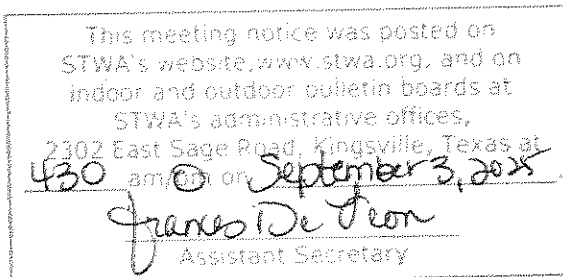 This meeting notice was posted on
STWA's website, www.stwa.org, and on
indoor and outdoor bulletin boards at
STWA's administrative offices,
2302 East Sage Road, Kingsville, Texas at
430 am/pm on September 3, 2025.
Frances De Leon
Assistant Secretary